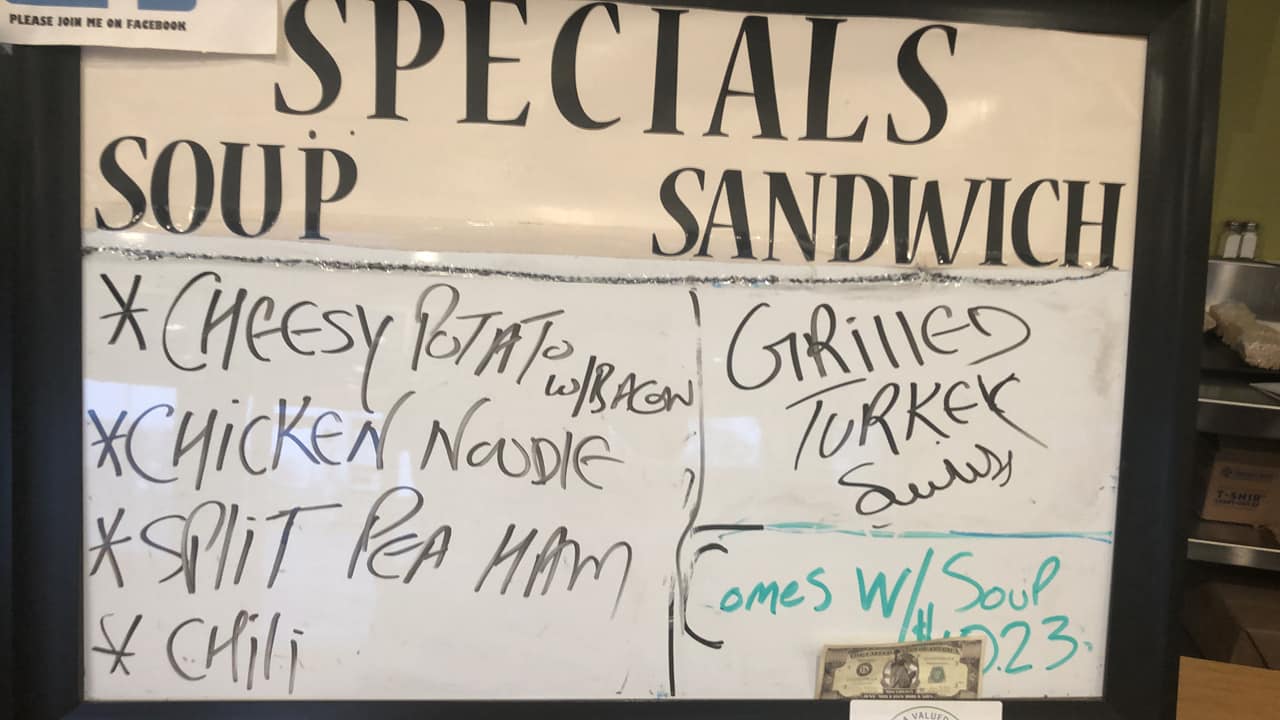 PLEASE JOIN ME ON FACEBOOK
SPECIALS
SOUP
SANDWICH
* CHEESY POTATO
w/BACON
* CHICKEN NOODLE
* SPLIT PEA HAM
* CHili
GRillED
TURKEY
Swiss
Comes W/ Soup
0.23
T-SHIR
A VALUED